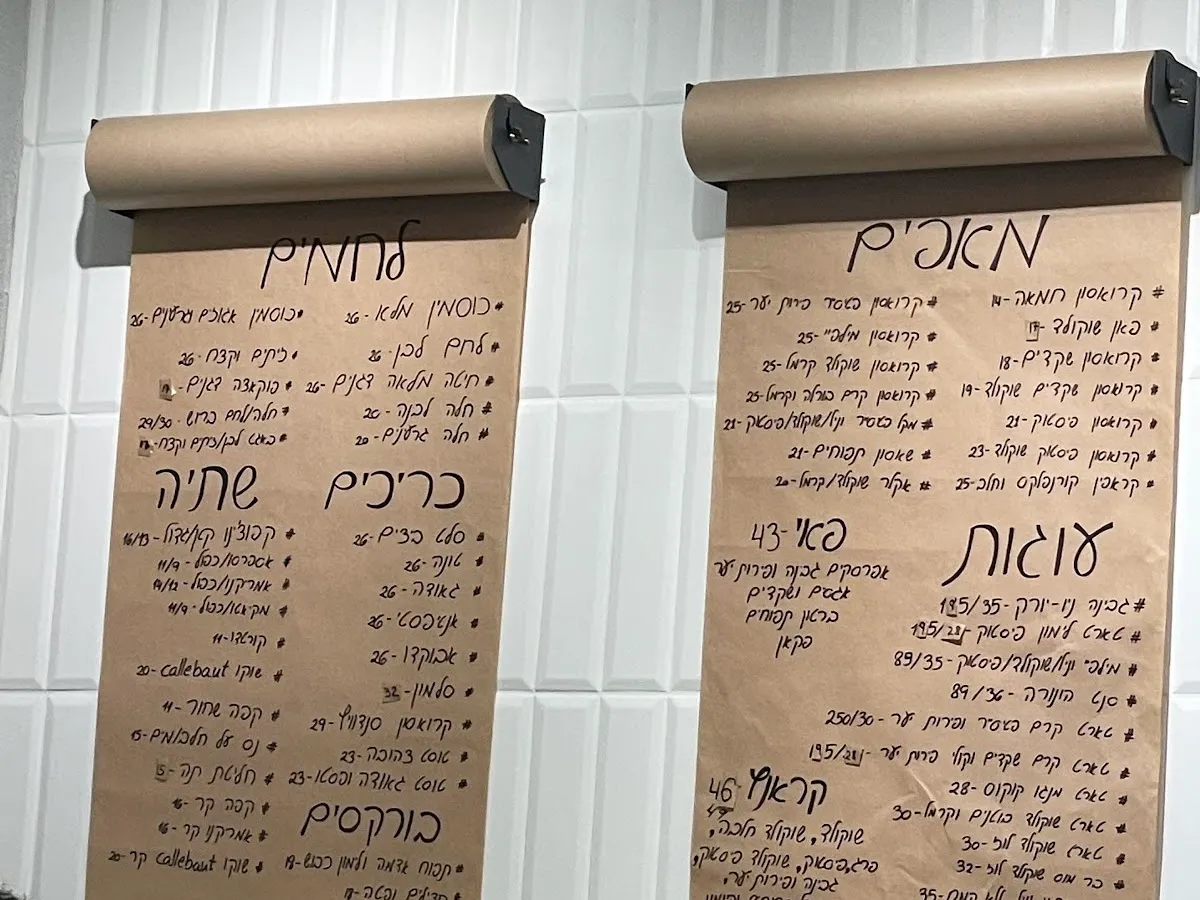 לחמים
# כוסמין מלא -26
# לחם לבן -26
# חיטה מלאה דגנים -26
# חלה לבנה -20
# חלה גרעינים -20
# כוסמין אגוזים וגרעינים -26
# זיתים וקצח -26
# פוקאצה דגנים -
# חלה/לחם ברוש -29/30
# באגט לבן/זיתים וקצח -
כריכים
# סלט ביצים -26
# טונה -26
# גאודה -26
# אנטיפסטי -26
# אבוקדו -26
# סלמון -32
# קרואסון סנדוויץ -29
# טוסט צהובה -23
# טוסט גאודה ופסטו -23
בורקסים
# תפוח אדמה ולימון כבוש -17
חצילים ופטה -17
שתיה
# קפוצ'ינו קטן/גדול -16/13
# אספרסו/כפול -11/9
# אמריקנו/כפול -14/12
# מקיאטו/כפול -11/9
# קורטדו -11
# שוקו callebaut -20
# קפה שחור -11
# נס על חלב/מים -15
# חליטת תה -15
# קפה קר -16
# אמריקנו קר -16
# שוקו callebaut קר -20
מאפים
# קרואסון חמאה -14
# פאן שוקולד -17
# קרואסון שקדים -18
# קרואסון שקדים שוקולד -19
# קרואסון פיסטוק -21
# קרואסון פיסטוק שוקולד -23
# קראפין קורנפלקס וחלב -25
# קרואסון פטסייר פירות יער -25
# קרואסון מילפיי -25
# קרואסון שוקולד קרמל -25
# קרואסון קרם ברולה וקרמל -25
# מקל פטסייר וניל/שוקולד/פיסטוק -21
# שאסון תפוחים -21
# אקלר שוקולד/קרמל -20
עוגות
# גבינה ניו-יורק -195/35
# טארט לימון פיסטוק -195/28
# מילפיי וניל/שוקולד/פיסטוק -89/35
# סנט הונורה -89/36
# טארט קרם פטסייר ופירות יער -250/30
# טארט קרם שקדים וקולי פירות יער -195/28
# טארט מנגו קוקוס -28
# טארט שוקולד בוטנים וקרמל -30
# טארט שוקולד לוז -30
# בר מוס שוקולד לוז -32
ללא קמח -35
פאי -43
אפרסקים גבינה ופירות יער
אגסים ושקדים
ברטון תפוחים
פקאן
קראנץ' 46
שוקולד, שוקולד חלבה,
פרג, פיסטוק, שוקולד פיסטוק,
גבינה ופירות יער,